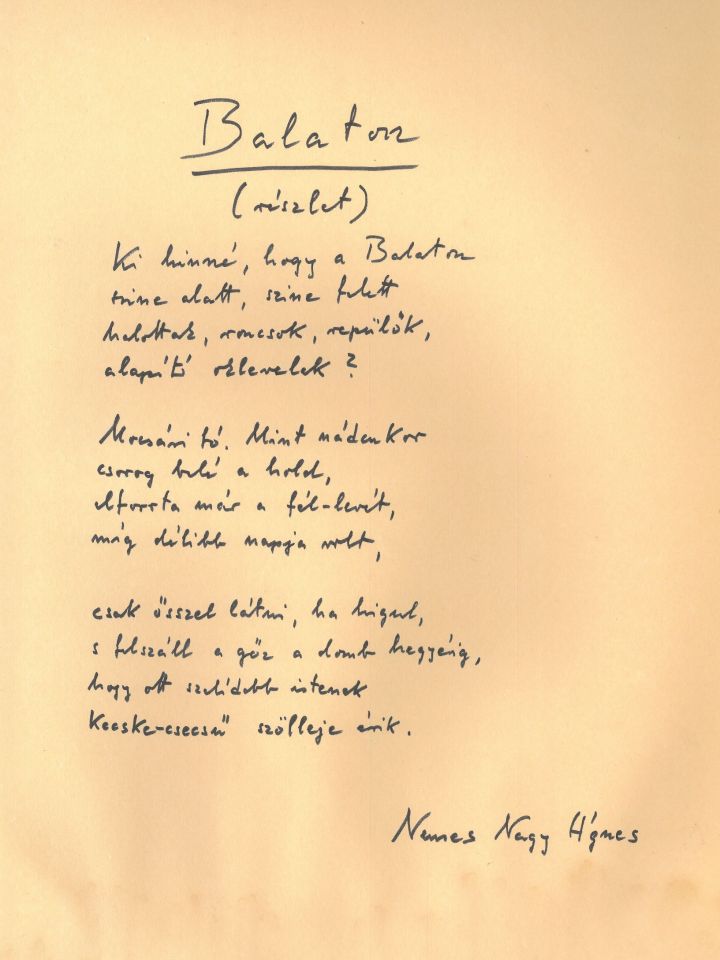 Balaton
(részlet)
Ki hinné, hogy a Balaton
szine alatt, szine felett
halottak, roncsok, repülők,
alapító oklevelek?
Mocsári tó. Mint nádcukor
csorog belé a hold,
elforrta már a fél-levét,
míg délibb napja volt,
csak ősszel látni, ha higul,
s felszáll a gőz a domb hegyéig,
hogy ott szelídebb istenek
Kecske-csecsű szölleje érik.
Nemes Nagy Ágnes